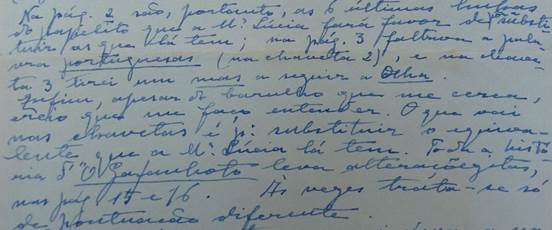 Na pág. 2 são, portanto, as 6 últimas linhas
do papelito que a Mª Lúcia fará favor de substi-
tuir às que lá tem; na pág. 3 faltava a pala-
vra portuguesas (na chaveta 2), e na chave-
ta 3 tirei um mas a seguir a Olha.
Enfim, apesar do barulho que me cerca,
creio que me faço entender. O que vai
nas chavetas é p: substituir o equiva-
lente que a Mª Lúcia lá tem. Toda a histó-
ria d'"O Gafanhoto" leva alteraçõezitas,
nas pág 15 e 16. Às vezes trata-se só
de pontuação diferente.